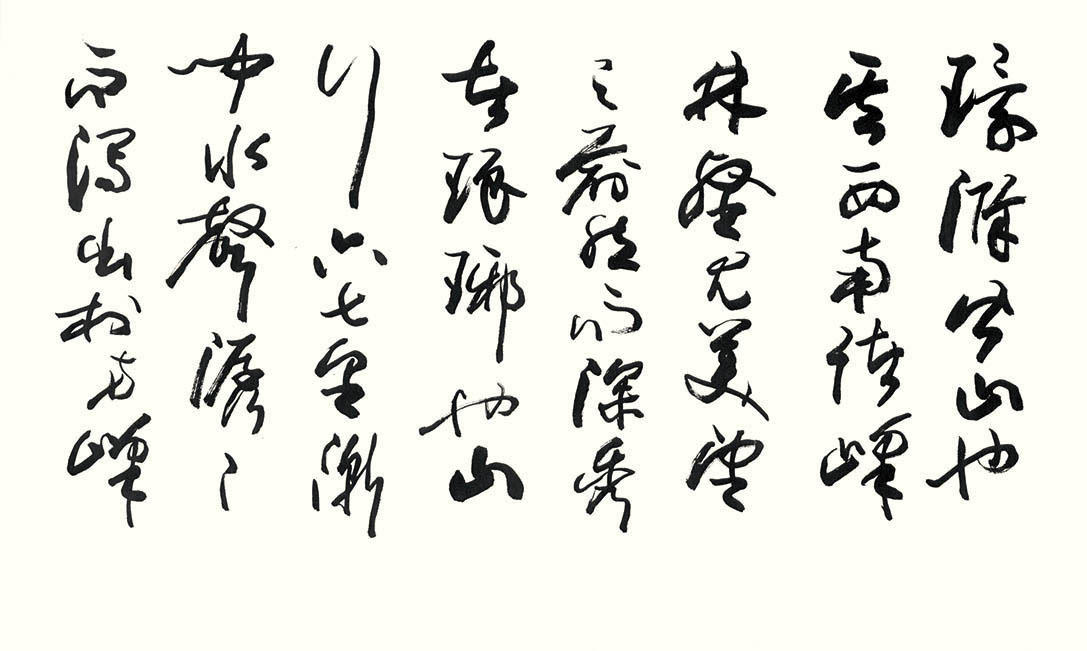 環滁皆山也
其西南諸峰
林壑尤美望
之蔚然而深秀
者琅琊也山
行六七里漸
聞水聲潺々
而瀉出於兩峰